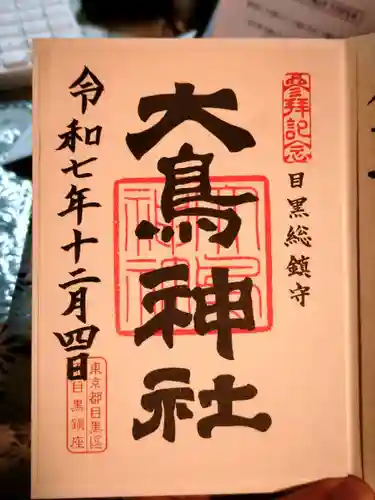 參拝記念
目黒総鎮守
大鳥神社
令和七年十二月四日
東京都目黒区
目黒鎮座